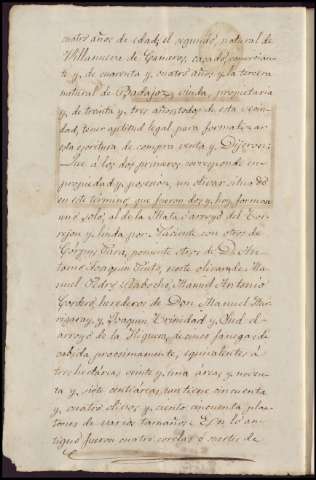 cuatro años de edad; el segundo, natural de
Villanueva de Cameros, casado, comercian-
te y de cuarenta y cuatro años y la tercera
natural de Badajoz, viuda, propietaria
y de treinta y tres años, todos de esta vecin-
dad, tienen aptitud legal para formalizar
esta escritura de compra venta y Dijeron:
Que á los dos primeros corresponde en
propiedad y posesion, un olivar situado
en este termino, que fueron dos y hoy forman
uno solo, al de la Mata y arroyo del
y linda por Oriente con otros de
poniente otros de Dn An-
tonio Joaquin Pinto, norte olivar de Ma-
nuel Pedro Manuel Antonio
Cordero, herederos de Don Manuel
y Joaquin Trinidad y Sud el
arroyo de la Higuera, de once fanegas de
cabida procsimamente, equivalentes á
tres hectáreas veinte y una áreas y noven-
ta y siete centiáreas, contiene cincuenta
y cuatro olivos y ciento cincuenta plan-
tones de varios tamaños. En lo an-
tiguo fueron cuatro ó suertes de